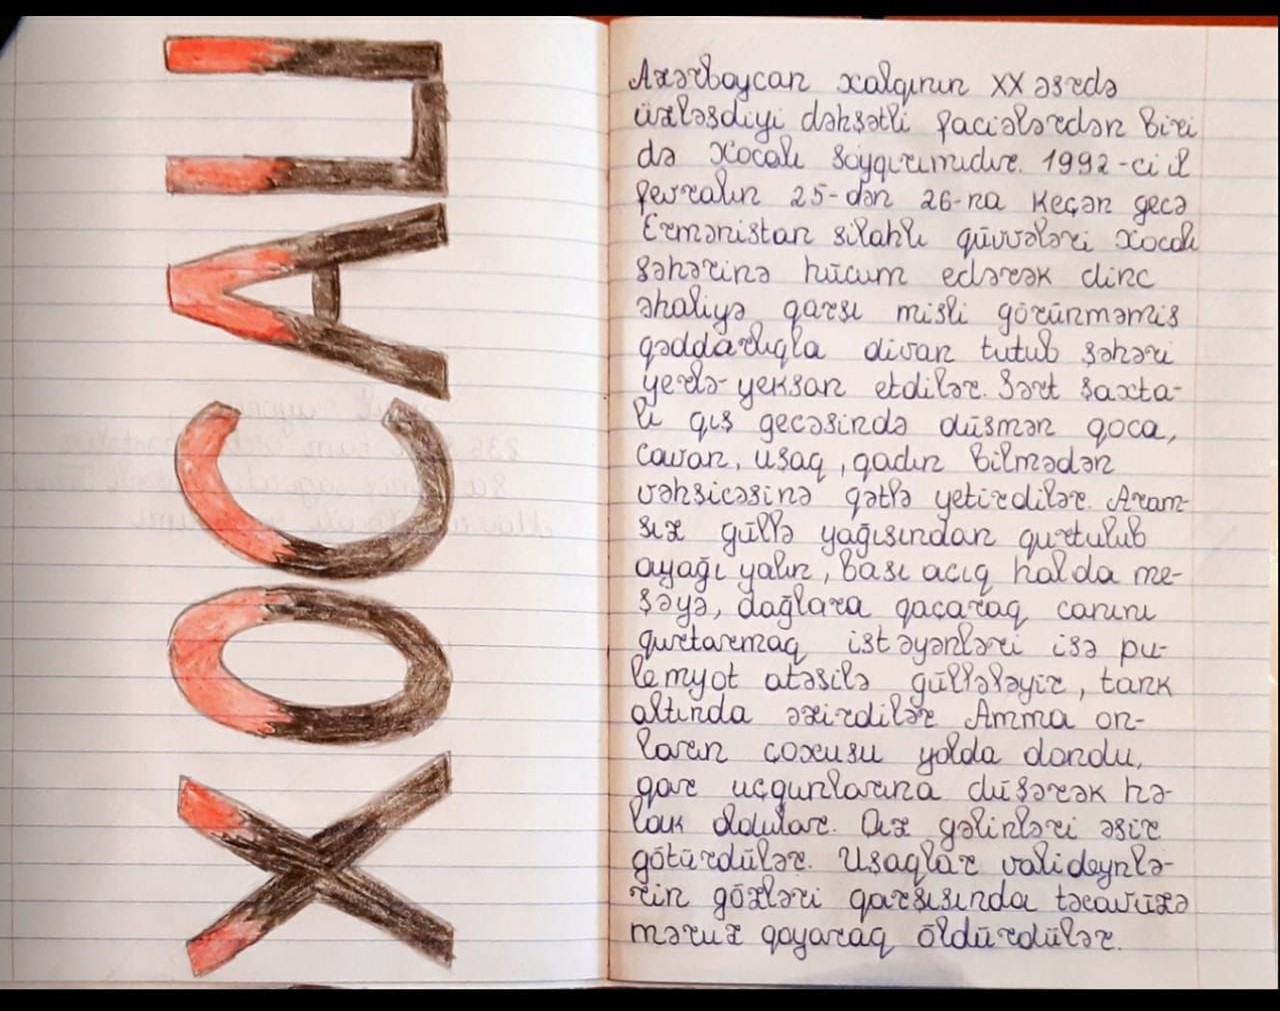 XOCALI
Azərbaycan xalqının XX əsrdə
üzləşdiyi dəhşətli faciələrdən biri
də Xocalı soyqırımıdır. 1992-ci il
fevralın 25-dən 26-na keçən gecə
Ermənistan silahlı qüvvələri Xocalı
şəhərinə hücum edərək dinc
əhaliyə qarşı misli görünməmiş
qəddarlıqla divan tutub şəhəri
yerlə-yeksan etdilər. Sərt şaxta-
lı qış gecəsində düşmən qoca,
cavan, uşaq, qadın bilmədən
vəhşicəsinə qətlə yetirdilər. Aram-
sız güllə yağışından qurtulub
ayağı yalın, başı açıq halda me-
şəyə, dağlara qaçaraq canını
qurtarmaq istəyənləri isə pu-
lemyot atəşilə güllələyir, tank
altında əzirdilər Amma on-
ların çoxusu yolda dondu,
qar uçqunlarına düşərək hə-
lak oldular. Qız gəlinləri əsir
götürdülər. Uşaqlar valideynlə-
rin gözləri qarşısında təcavüzə
məruz qoyaraq öldürdülər.